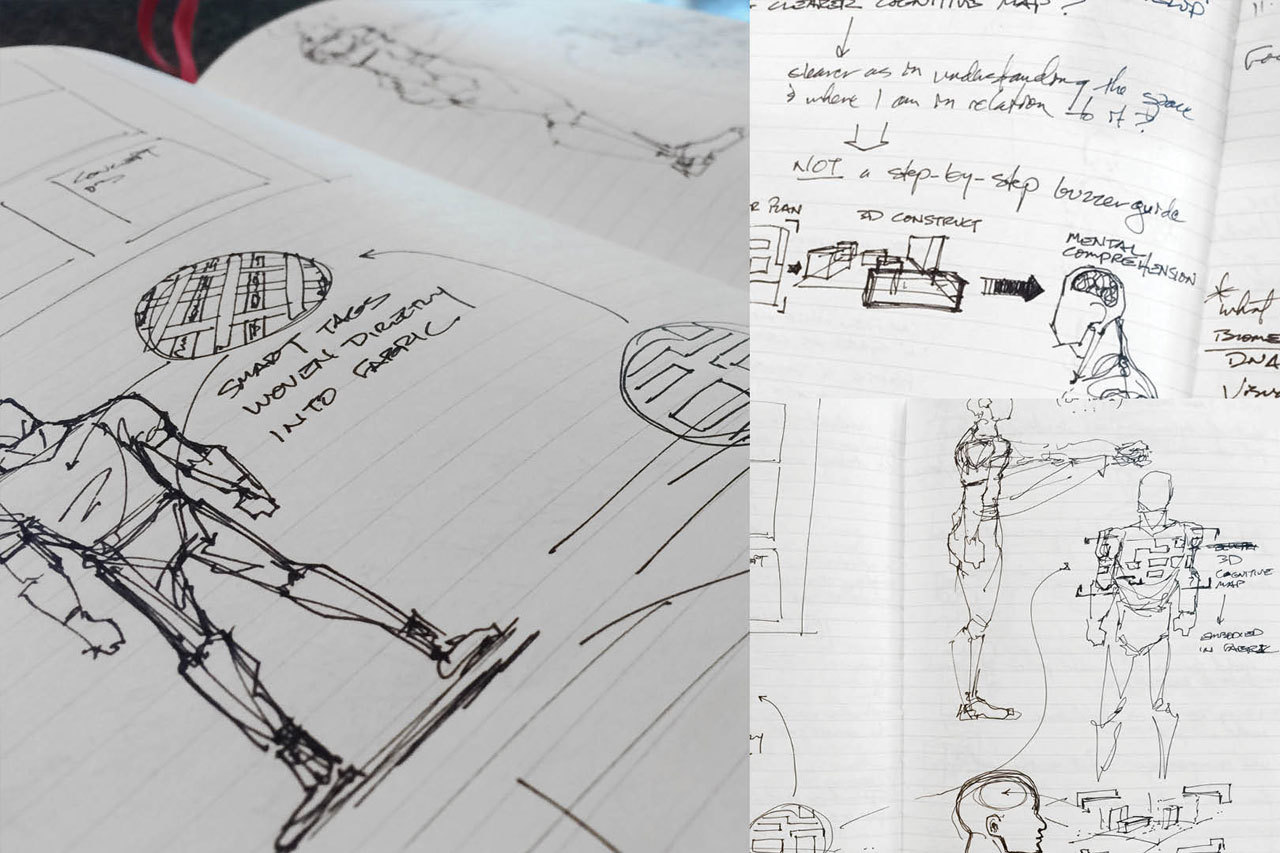 CONCEPT
SMART TAGS
WOVEN DIRECTLY
INTO FABRIC.
CLEARER COGNITIVE MAP?
clearer as in understanding the space
& where I am in relation to it?
NOT a step-by-step buzzer guide
R PLAN
3D CONSTRUCT
MENTAL
COMPREHENSION
what
BIOME
DNA
VISU
3D
COGNITIVE
MAP
EMBODIED
IN FABRIC